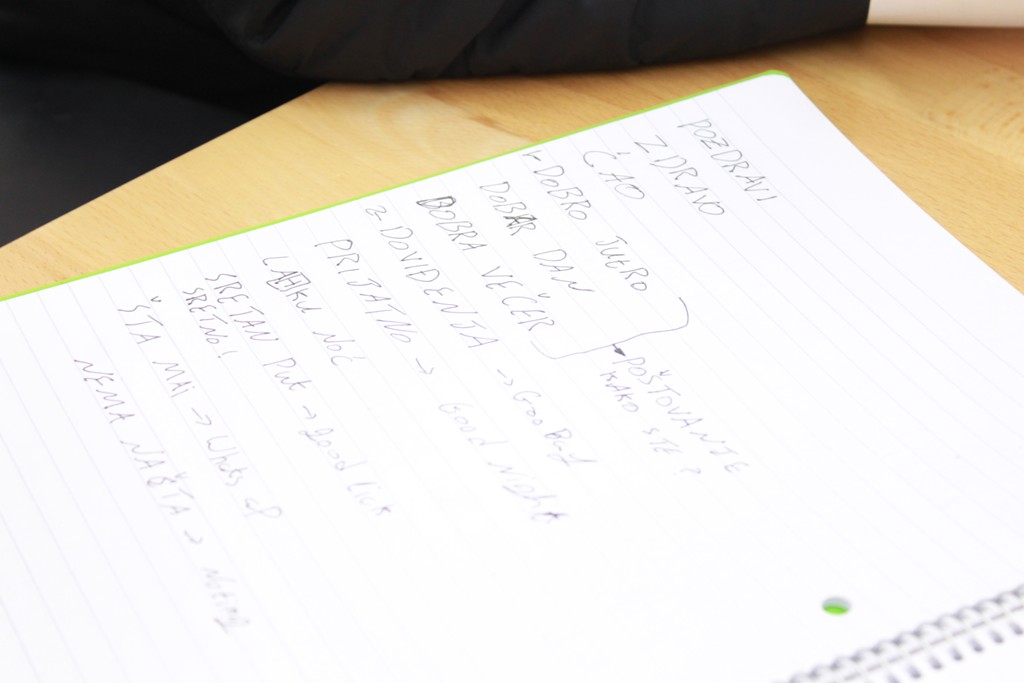 POZDRAVI
ZDRAVO
ĆAO
1- DOBRO JUTRO
DOBAR DAN
DOBRA VEČER
POŠTOVANJE
KAKO STE?
2- DOVIĐENJA → GooByd
PRIJATNO → Good Night
LAHKU NOĆ
SRETAN PUt → good Luck
SRETNO!
ŠTA MAI → Whats up
NEMA NAŠTA →